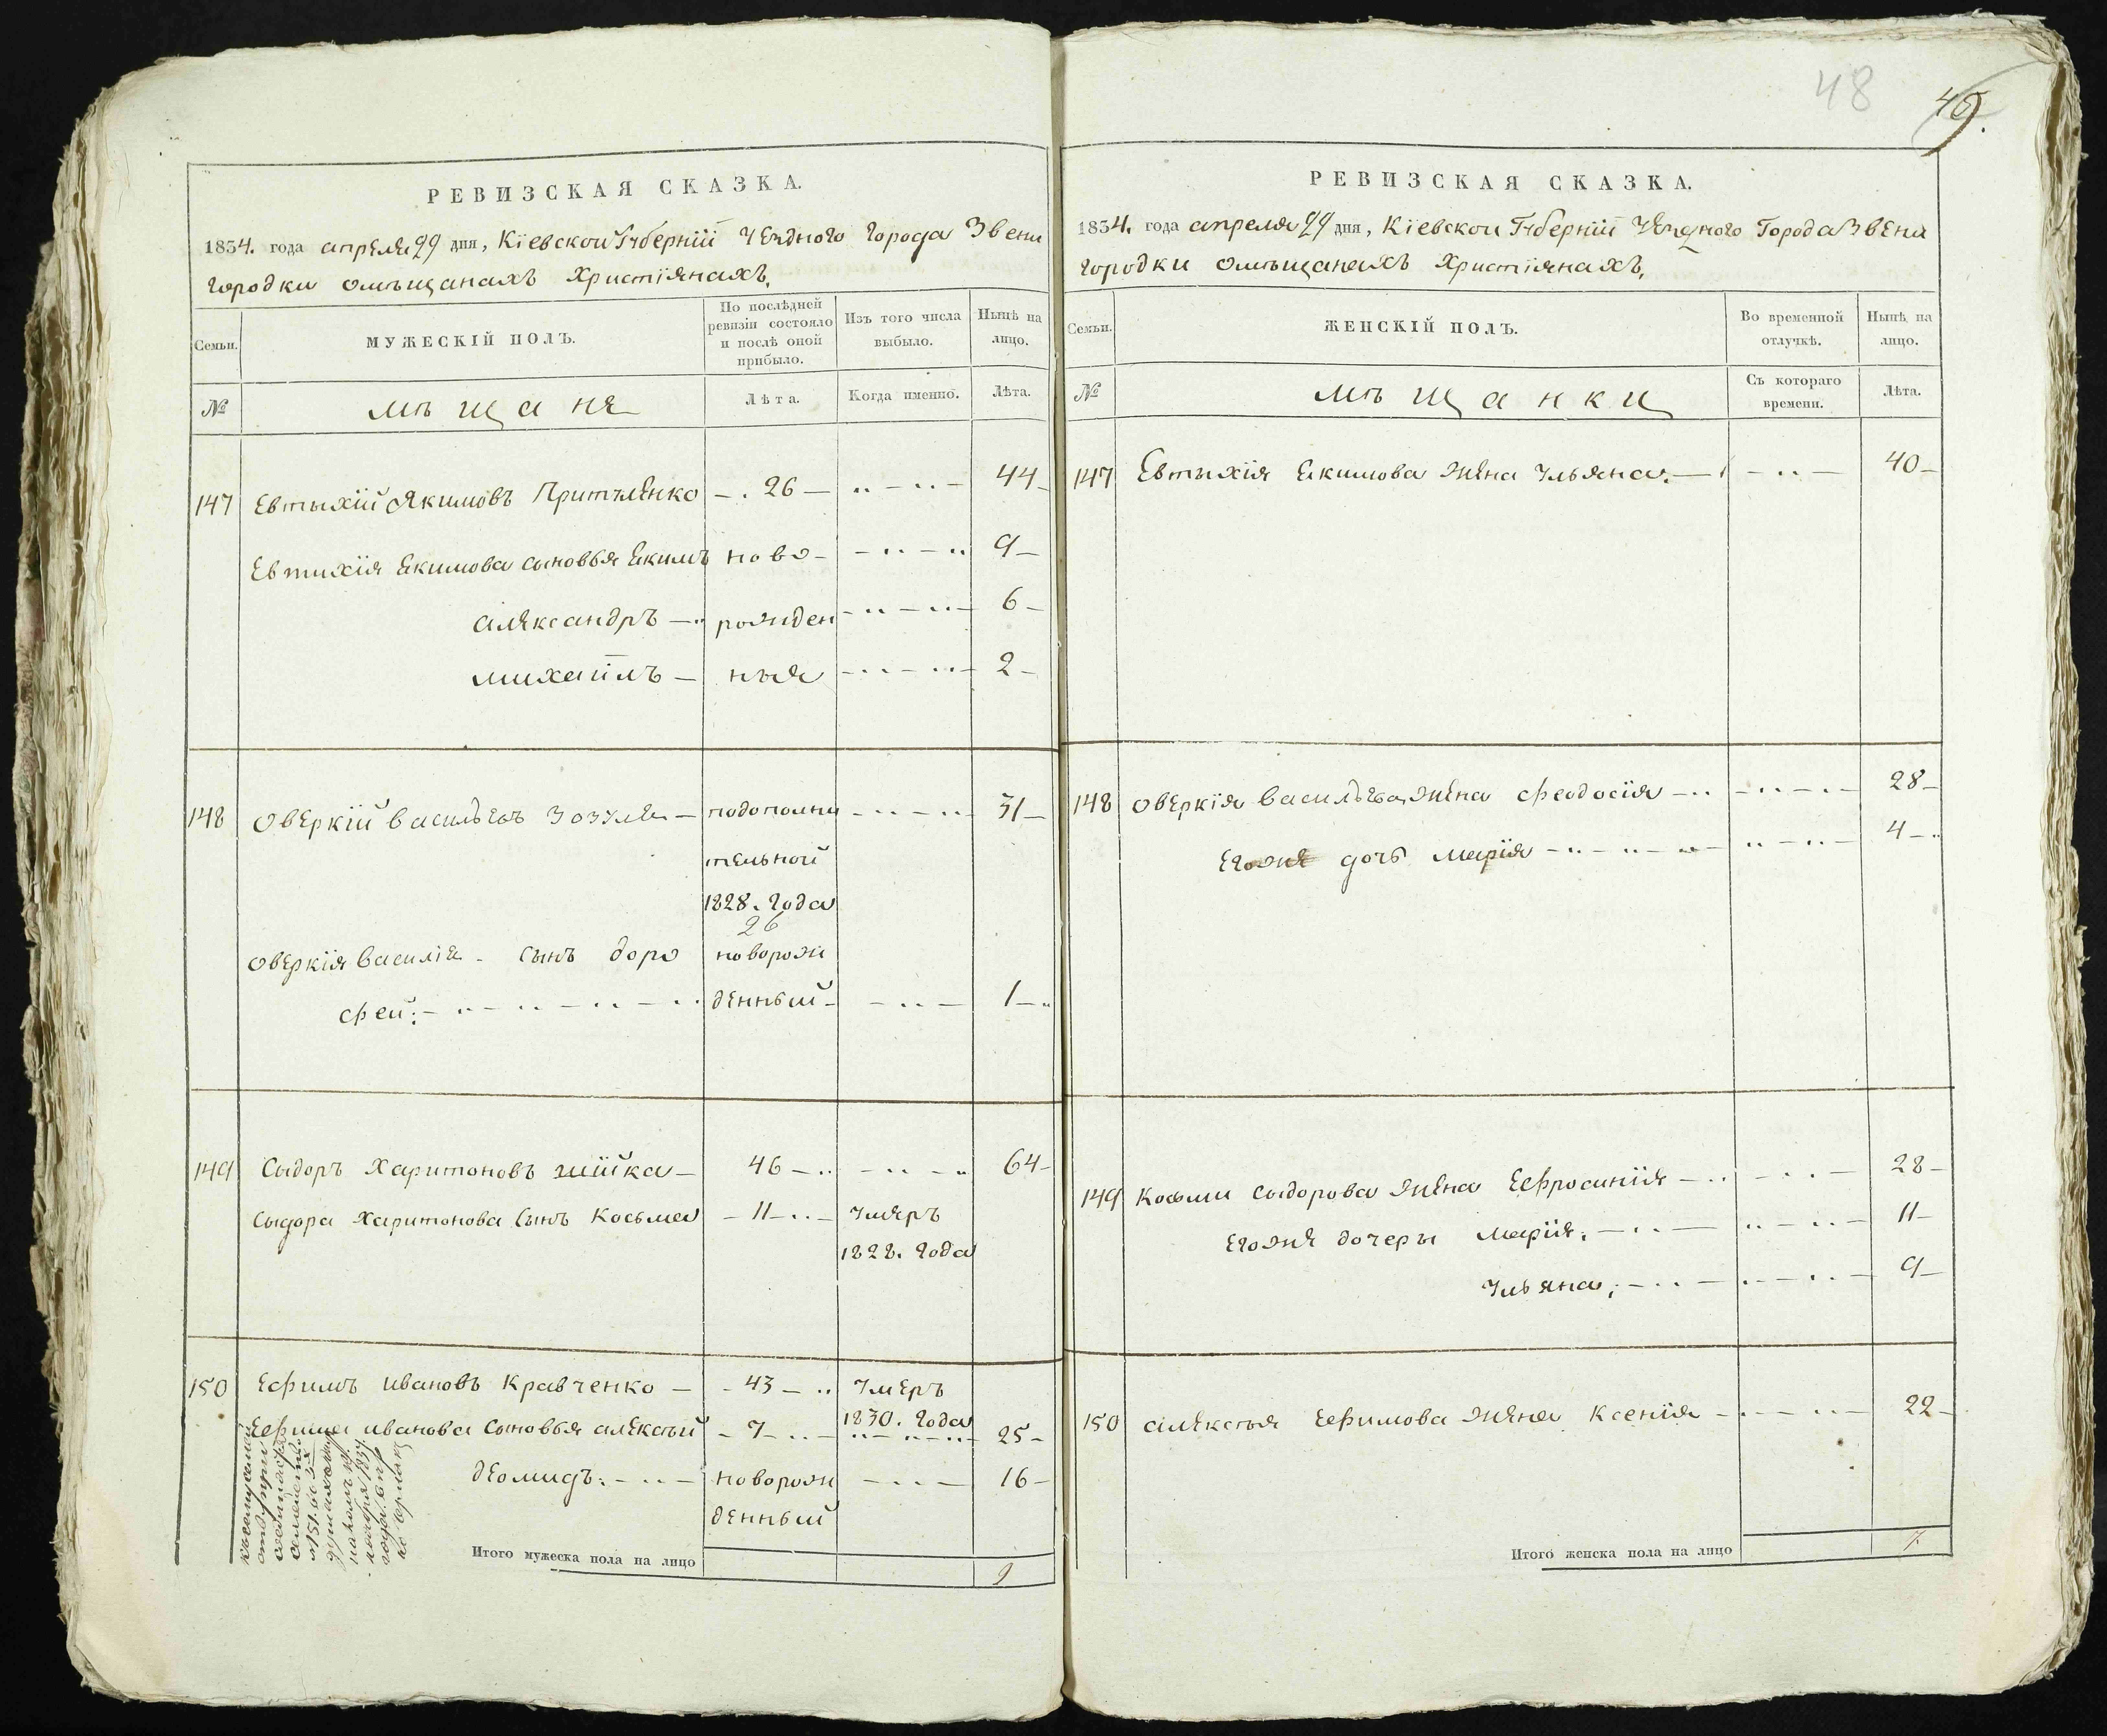 РЕВИЗСКАЯ СКАЗКА.
1834. года апреля 29 дня, Кіевской Губерніи Уезднаго Города Звени
городки омѣщанахъ Христіянахъ,
Семьи.
МУЖЕСКІЙ ПОЛЪ.
По послѣдней ревизіи состояло и послѣ оной прибыло.
Изъ того числа выбыло.
Нынѣ на лицо.
№
мѣщане
Лѣта.
Когда именно.
Лѣта.
147 Евтыхій Якимовъ 26 44
Евтихія Екимова сыновья Екимъ ново- 9
александръ рожден 6
михаилъ ныя 2
148 Оверкій васильевъ Зозуля подополни 31
тельной
1828. года
26
Оверкія василія сынъ доро новорож
фей: денный 1
149 Сыдоръ Харитоновъ шійка 46 64
Сыдора Харитонова сынъ Косьма 11 умеръ
1828. года
150 Ефимъ ивановъ кравченко 43 умеръ
1830. года
Ефима иванова сыновья алексѣй 7 25
деомидъ: новорож 16
денный
Итого мужеска пола на лицо 9
48
РЕВИЗСКАЯ СКАЗКА.
1834. года апреля 29 дня, Кіевской Губерніи Уезднаго Города Звена
городки омѣщанахъ Христіянахъ,
Семьи.
ЖЕНСКІЙ ПОЛЪ.
Во временной отлучкѣ.
Нынѣ на лицо.
№
мѣщанки
Съ котораго времени.
Лѣта.
147 Евтыхія Екимова жена Ульяна 40
148 Оверкія васильева жена феодосія 28
Егоже дочь марія 4
149 Козми сыдорова жена Ефросинія 28
Егоже дочеры марія, 11
Ульяна, 9
150 алексѣя Ефимова жена Ксенія 22
Итого женска пола на лицо 7.